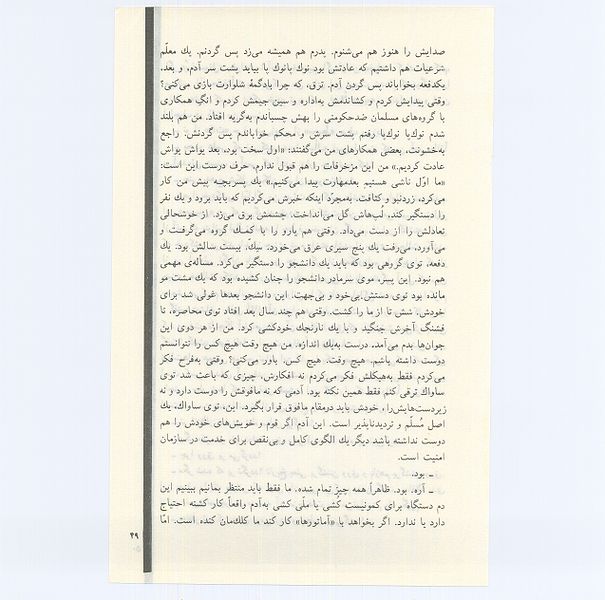 صدایش را هنوز هم می‌شنوم. پدرم هم همیشه می‌زد پس گردنم. یك معلّم
شرعیات هم داشتیم که عادتش بود نوك پانوك پا بیاید پشت سر آدم، و بعد،
یکدفعه بخواباند پس گردن آدم. ترق، که چرا بادگمهٔ شلوارت بازی می‌کنی؟
وقتی پیدایش کردم و کشاندمش به‌اداره و سین جیمش کردم و انگ همکاری
با گروه‌های مسلمان ضدحکومتی را بهش چسباندم به‌گریه افتاد. من هم بلند
شدم نوك‌پا نوك‌پا رفتم پشت سرش و محکم خواباندم پس گردنش. راجع
به‌خشونت، بعضی همکارهای من می‌گفتند: «اول سخت بود، بعد یواش یواش
عادت کردیم.» من این مزخرفات را هم قبول ندارم. حرف درست این است:
«ما اوّل ناشی هستیم بعدمهارت پیدا می‌کنیم.» یك پسربچه پیش من کار
می‌کرد، زردنبو و کثافت. به‌مجرّد اینکه خبرش می‌کردیم که باید برود و یك نفر
را دستگیر کند، لُپ‌هاش گل می‌انداخت. چشمش برق می‌زد. از خوشحالی
تعادلش را از دست می‌داد. وقتی هم یارو را با کمك گروه می‌گرفت و
می‌آورد، می‌رفت یك پنج سیری عرق می‌خورد. سِكّ. بیست سالش بود. یك
دفعه، توی گروهی بود که باید یك دانشجو را دستگیر می‌کرد. مسأله‌ی مهمی
هم نبود. این پسر، موی سرمادر دانشجو را چنان کشیده بود که یك مشت مو
مانده بود توی دستش. بی‌خود و بی‌جهت. این دانشجو بعدها غولی شد برای
خودش. شش تا از ما را کشت. وقتی هم چند سال بعد افتاد توی محاصره، تا
فشنگ آخرش جنگید و با یك نارنجك خودکشی کرد. من از هر دوی این
جوان‌ها بدم می‌آمد، درست به‌یك اندازه. من هیچ وقت هیچ کس را نتوانستم
دوست داشته باشم. هیچ وقت. هیچ کس. باور می‌کنی؟ وقتی به‌فرح فکر
می‌کردم فقط به‌هیکلش فکر می‌کردم نه افکارش. چیزی که باعث شد توی
ساواك ترقی کنم فقط همین نکته بود. آدمی که نه مافوقش را دوست دارد و نه
زیردست‌هایش‌را، خودش باید درمقام مافوق قرار بگیرد. این، توی ساواك، یك
اصل مُسلّم و تردیدناپذیر است. این آدم اگر قوم و خویش‌های خودش را هم
دوست نداشته باشد دیگر یك الگوی کامل و بی‌نقص برای خدمت در سازمان
امنیت است.
ـ بود.
ـ آره. بود. ظاهراً همه چیز تمام شده. ما فقط باید منتظر بمانیم ببینیم این
دم دستگاه برای کمونیست کُشی یا ملّی کشی به‌آدم واقعاً کار کشته احتیاج
دارد یا ندارد. اگر بخواهد با «آماتورها» کار کند ما کلك‌مان کنده است. امّا
۴۹